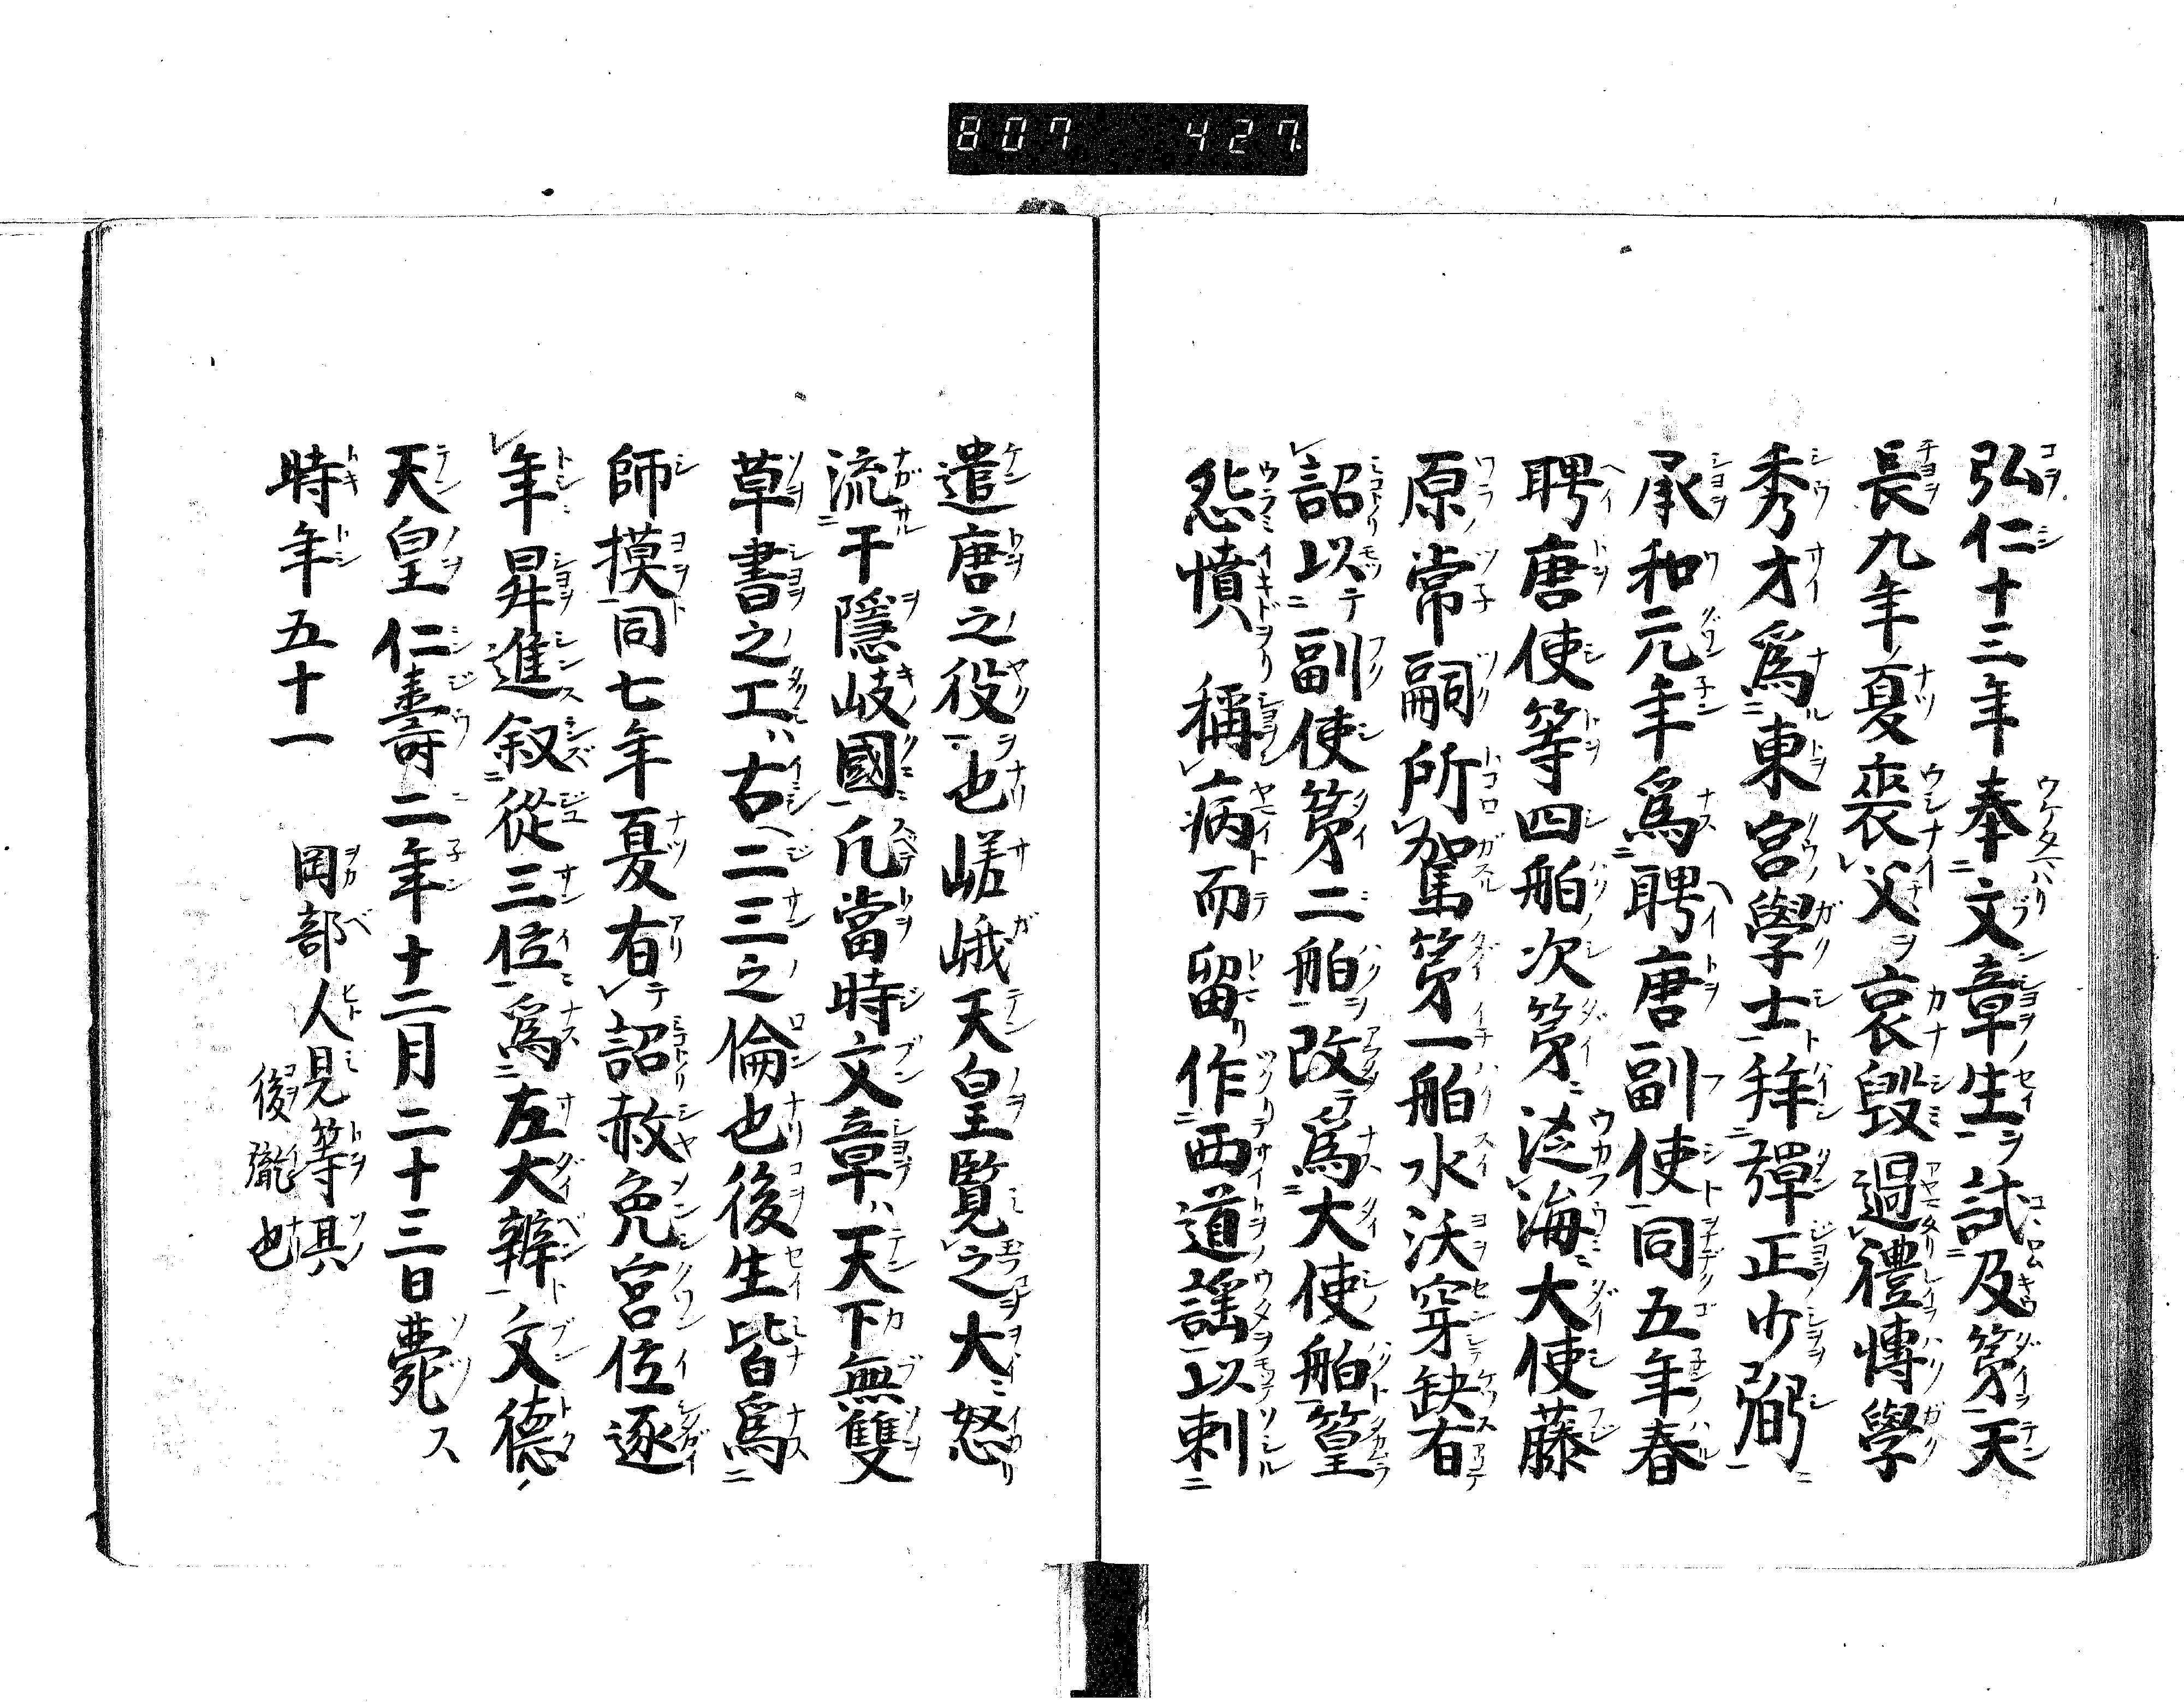 807 427
弘仁十三年奉文章生試及第天
長九年夏喪父哀毀過禮慱學
秀才爲東宮學士拜彈正少弼
承和元年爲聘唐副使同五年春
聘唐使等四舶次第泛海大使藤
原常嗣所駕第一舶水沃穿缺有
詔以副使第二舶改爲大使舶篁
怨憤稱病而留作西道謡以刺
遣唐之役也嵯峨天皇覧之大怒
流于隱岐國凡當時文章天下無雙
草書之工古二三之倫也後生皆爲
師摸同七年夏有詔赦免宮位逐
年昇進叙從三位爲左大辨文德
天皇仁壽二年十二月二十三日薨ス
時年五十一
岡部人見等其
後胤也